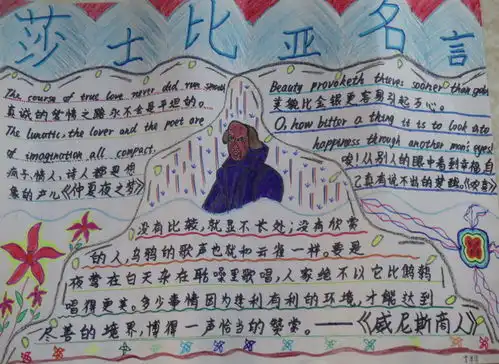 莎士比亚名言
The course of true love never did run smooth
真诚的爱情之路永不会是平坦的。
The lunatic, the lover and the poet are
of imagination all compact.
疯子、情人、诗人都是想
象的产儿《仲夏夜之梦》
Beauty provoketh thieves sooner than gold
美貌比金银更容易引起歹心。
O, how bitter a thing it is to look into
happiness through another man's eyes!
唉!从别人的眼中看到幸福,自
己真有说不出的
没有比较,就显不长处;没有欣赏
的人,乌鸦的歌声也就和云雀一样。要是
夜莺在白天杂在聒噪里歌唱,人家绝不以它比鹪鹩
唱得更美。多少事情因为逢到有利的环境,才能达到
尽善的境界,博得一声恰当的赞赏。——《威尼斯商人》